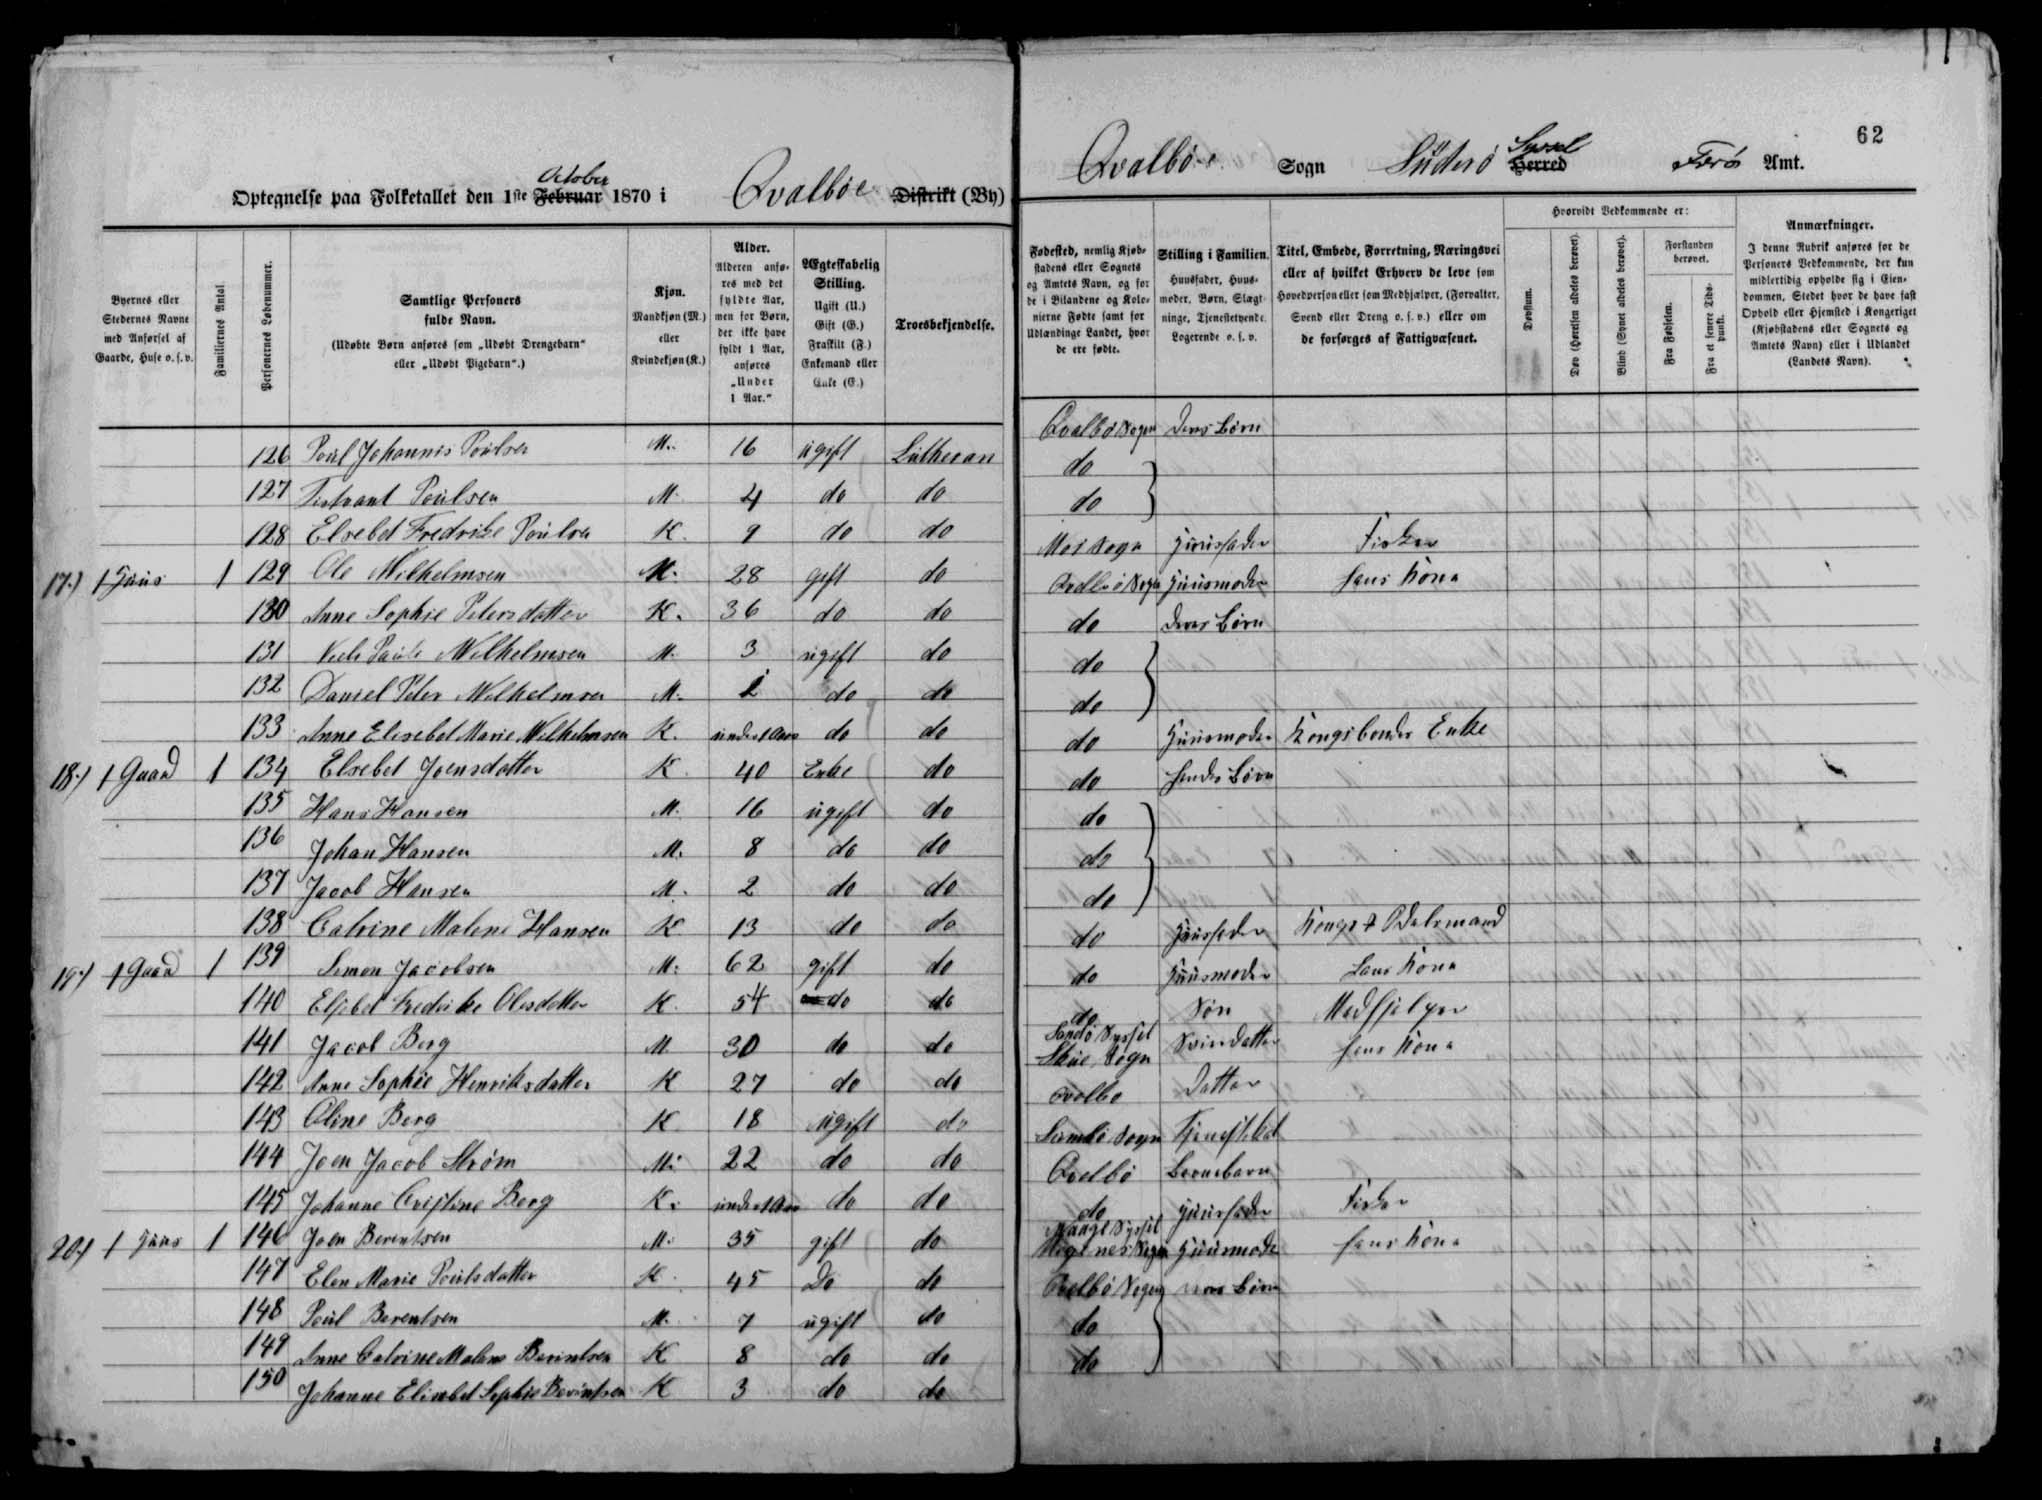 October
Optegnelse paa Folketallet den 1ste Februar 1870 i Qvalböe Distrikt (By)
Byernes eller Stedernes Navne med Anførsel af Gaarde, Huse o. s. v.
Familiernes Antal.
Personernes Løbenummer.
Samtlige Personers fulde Navn.
(Udøbte Børn anføres som „Udøbt Drengebarn“ eller „Udøbt Pigebarn“.)
Kjøn.
Mandkjøn (M.) eller Kvindekjøn (K.)
Alder.
Alderen anføres med det fyldte Aar, men for Børn, der ikke have fyldt 1 Aar, anføres „Under 1 Aar.“
Ægteskabelig Stilling.
Ugift (U.) Gift (G.) Fraskilt (F.) Enkemand eller Enke (E.)
Troesbekjendelse.
126 Poul Johannis Poulsen M. 16 ugift Lutheran
127 Tistrant Poulsen M. 4 do do
128 Elsebet Fredrike Poulsen K. 9 do do
17.) 1 Huus 1 129 Ole Wilhelmsen M. 28 gift do
130 Anne Sophie Petersdatter K. 36 do do
131 Niels Wilhelmsen M. 3 ugift do
132 Daniel Peter Wilhelmsen M. do do
133 Anne Elisebet Marie Wilhelmsen K. under 1 Aar do do
18.) 1 Gaard 1 134 Elsebet Joensdatter K. 40 Enke do
135 Hans Hansen M. 16 ugift do
136 Johan Hansen M. 8 do do
137 Jacob Hansen M. 2 do do
138 Catrine Malene Hansen K 13 do do
19.) 1 Gaard 1 139 Simon Jacobsen M. 62 gift do
140 Elsebet Fredrikke Olesdatter K. 54 do do
141 Jacob Berg M. 30 do do
142 Anne Sophie Henriksdatter K 27 do do
143 Oline Berg K 18 ugift do
144 Joen Jacob Strøm M. 22 do do
145 Johanne Cristine Berg K. under 1 Aar do do
20.) 1 Huus 1 146 Joen Berentsen M. 35 gift do
147 Elen Marie Poulsdatter K. 45 Do do
148 Poul Berentsen M. 7 ugift do
149 Anne Catrine Malene Berintsen K 8 do do
150 Johanne Elisebet Sophie Berintsen K 3 do do
62
Syssel
Qvalböe Sogn Süderö Herred Færö Amt.
Fødested, nemlig Kjøbstadens eller Sognets og Amtets Navn, og for de i Bilandene og Kolonierne Fødte samt for Udlændinge Landet, hvor de ere fødte.
Stilling i Familien.
Huusfader, Huusmoder, Børn, Slægtninge, Tjenestetyende, Logerende o. s. v.
Titel, Embede, Forretning, Næringsvei eller af hvilket Erhverv de leve som Hovedperson eller som Medhjælper, (Forvalter, Svend eller Dreng o. s. v.) eller om de forsørges af Fattigvæsenet.
Hvorvidt Vedkommende er:
Døvstum.
Døv (Hørelsen aldeles berøvet).
Blind (Synet aldeles berøvet).
Forstanden berøvet.
Fra Fødselen.
Fra et senere Tidspunkt.
Anmærkninger.
I denne Rubrik anføres for de Personers Vedkommende, der kun midlertidig opholde sig i Eiendommen, Stedet hvor de have fast Ophold eller Hjemsted i Kongeriget (Kjøbstadens eller Sognets og Amtets Navn) eller i Udlandet (Landets Navn).
Qvalbö Sogn Deres Börn
do
do
Sogn Huusfader Fisker
Qvalbö Sogn Huusmoder Hans Kone
do Deres Börn
do
do
do Huusmoder Kongsbondes Enke
do Hendes Börn
do
do
do
do Huusfader Konge & Odelsmand
do Huusmoder Hans Kone
do Sön Medhjelper
Sandö Syssel
Sogn Svierdatter Hans Kone
Qvalbo Datter
Sogn
Qvalbö Børnebarn
do Huusfader Fisker
Vaage Syssel
Sogn Huusmoder Hans Kone
Qvalbö Sogn Börn
do
do